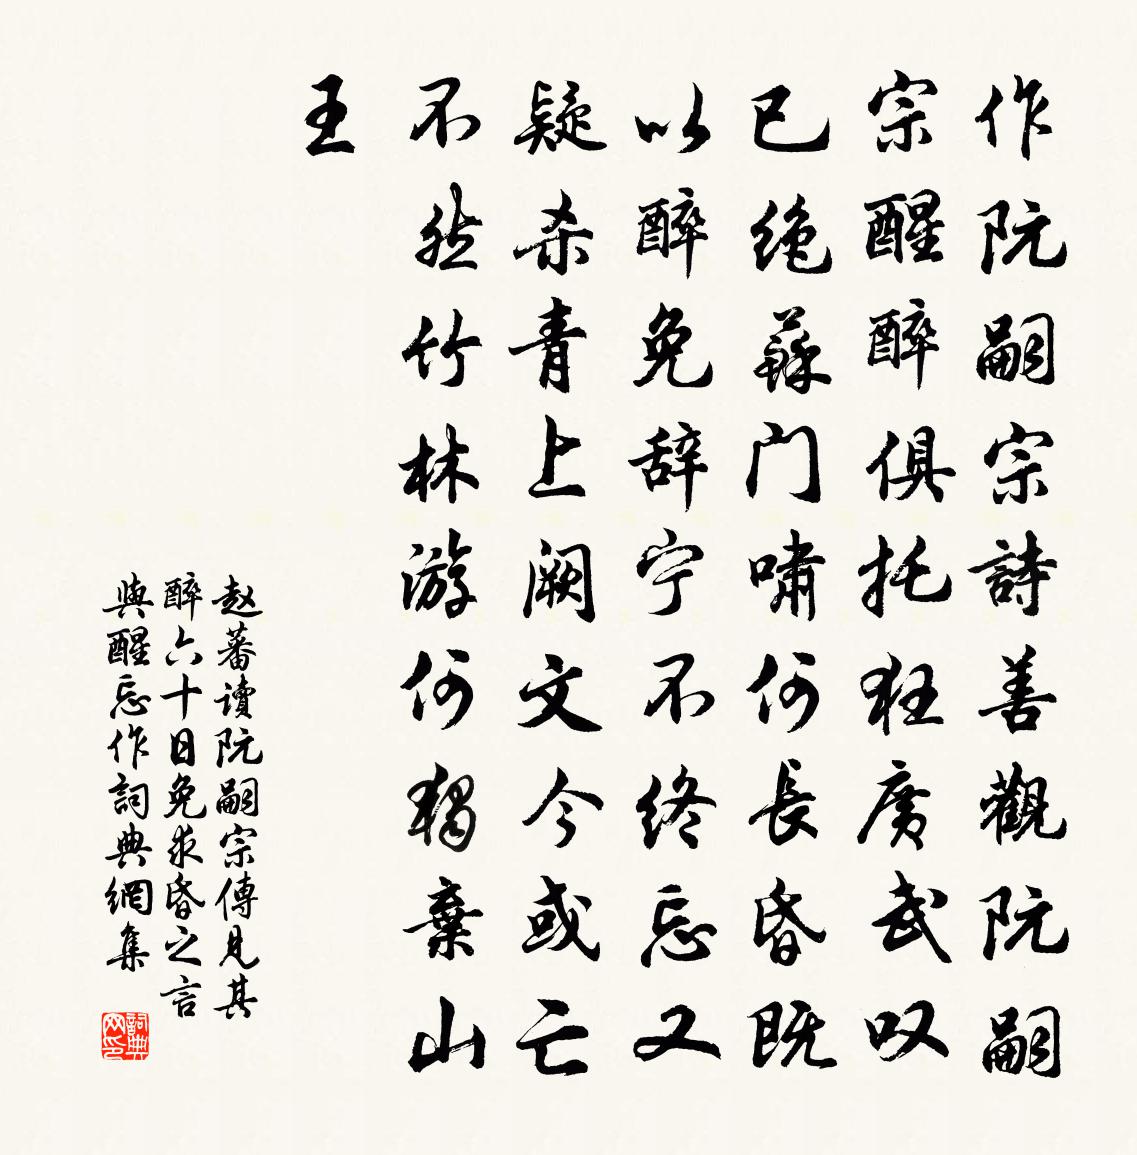 作阮嗣宗詩善觀阮嗣
宗醒醉俱托狂廣武叹
已绝蘇门嘯何長昏既
以醉免辞宁不终忘又
疑杀青上阙文今或亡
不然竹林游何獨棄山
王
赵蕃讀阮嗣宗傳見其
醉六十日免求昏之言
與醒忘作詞典網集
詞典网印